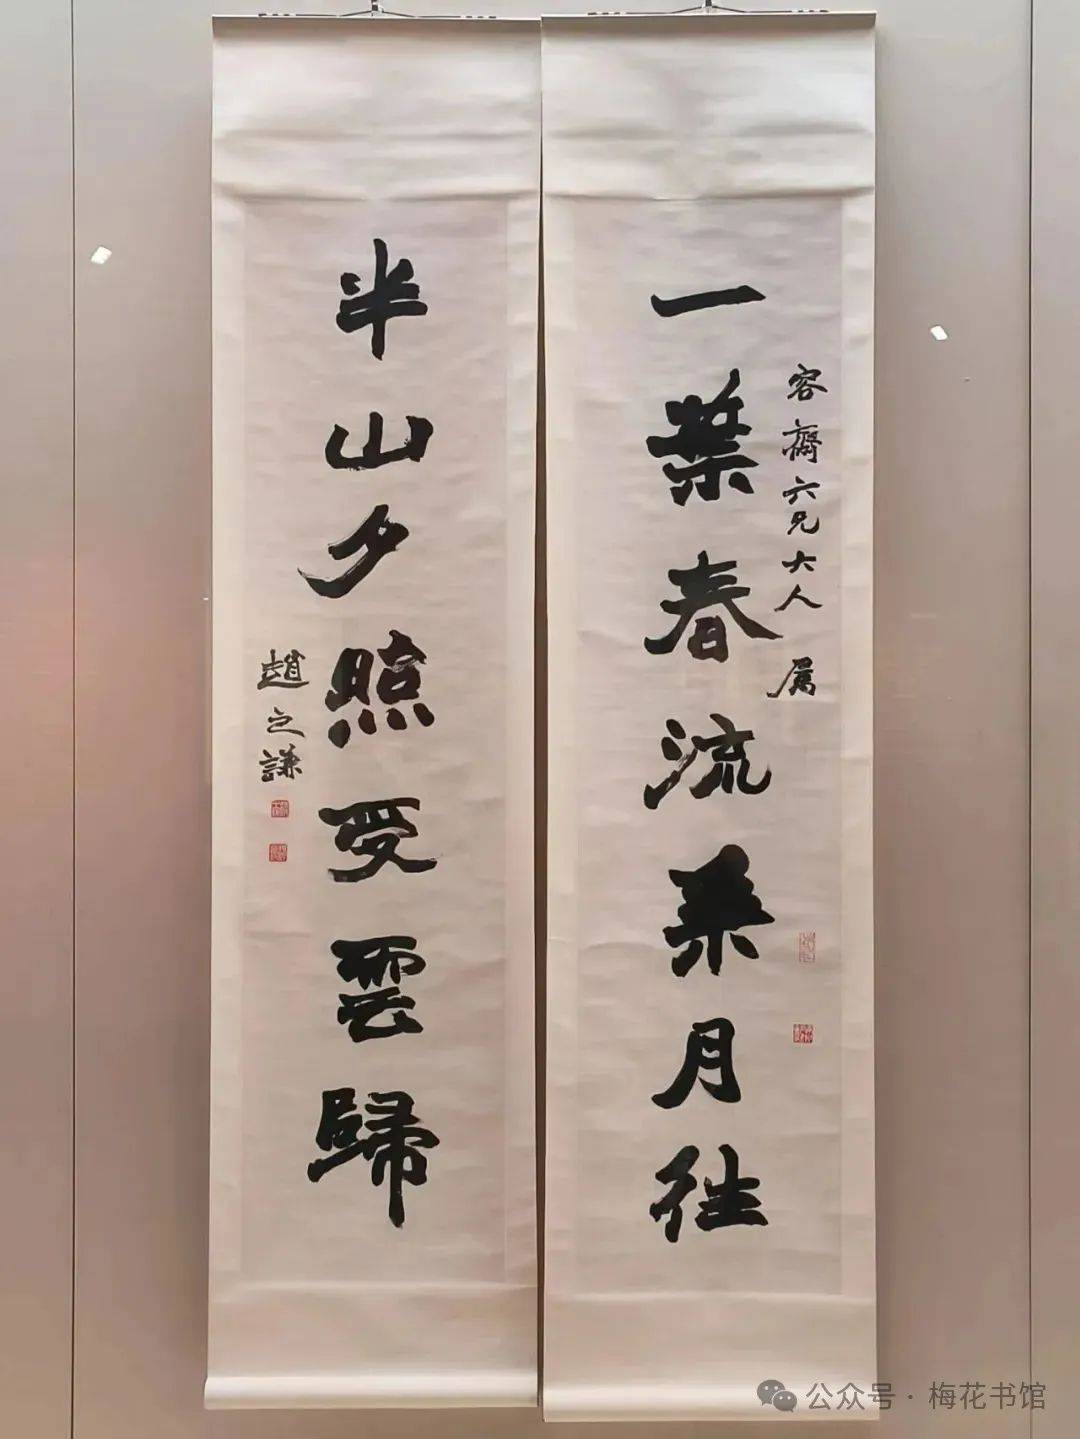 容齋六兄大人屬
一葉春流乘月往
半山夕照受雲歸
趙之謙
公众号·梅花书馆